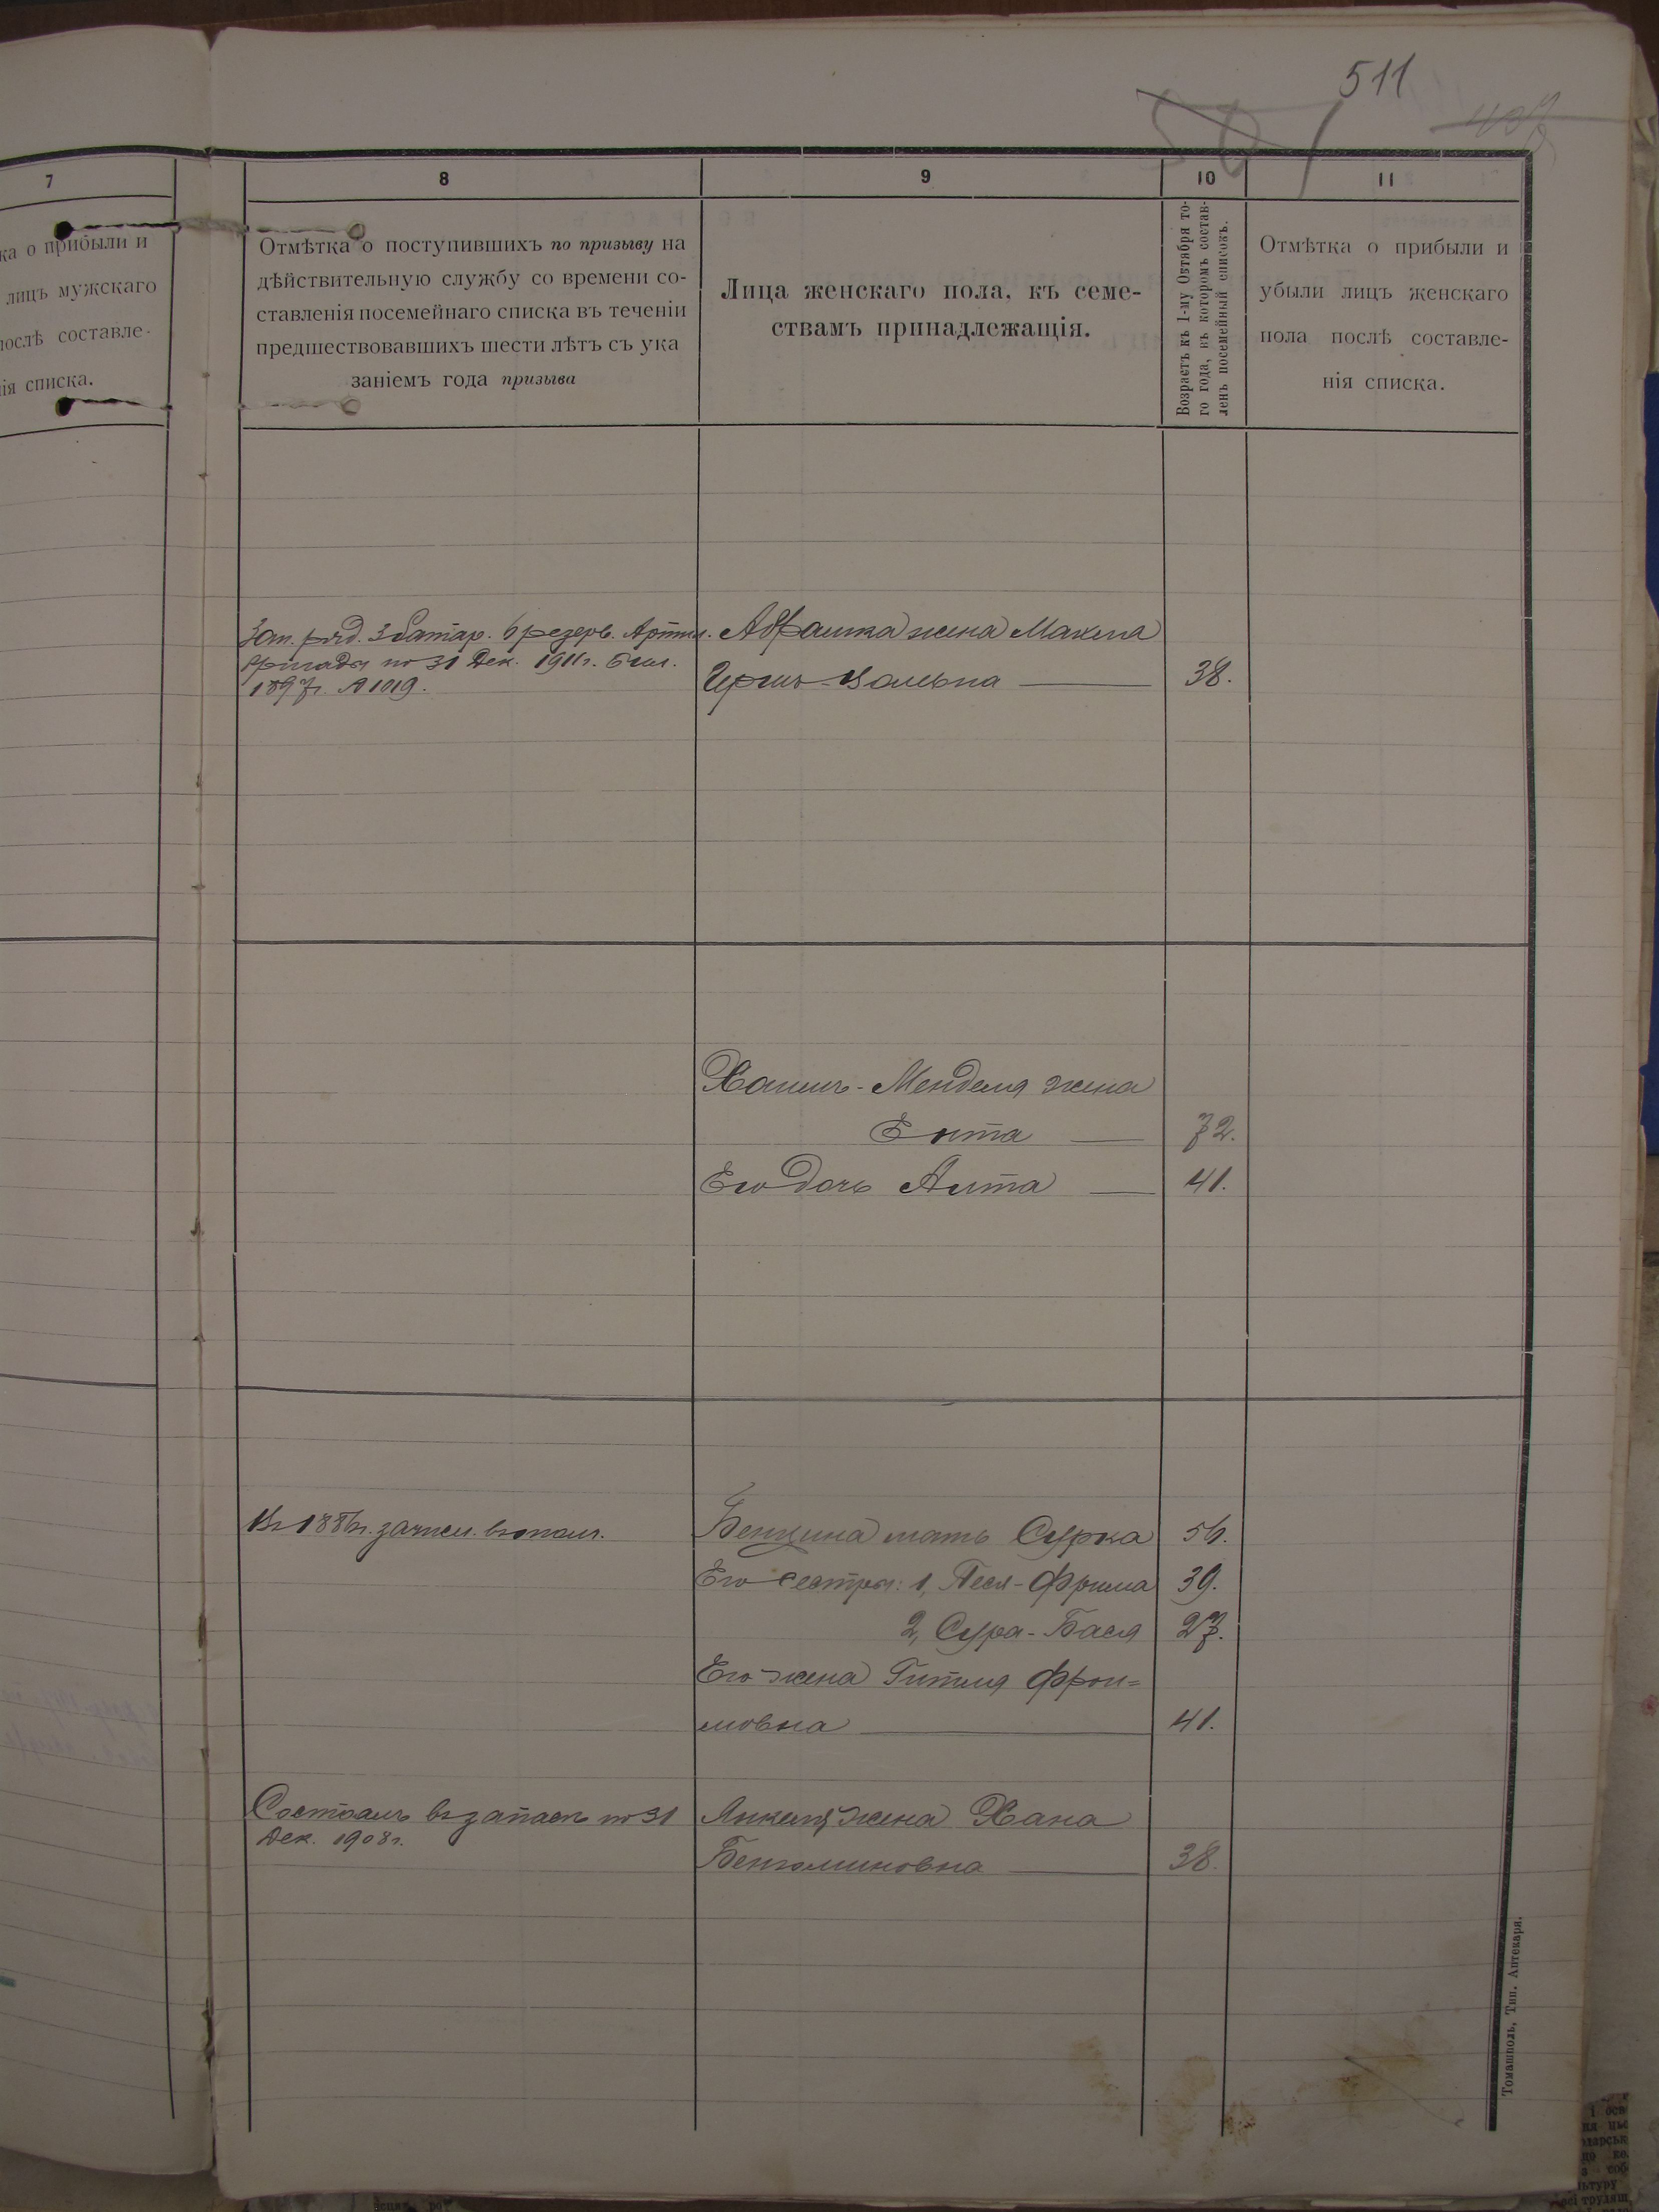 511
7
8
9
10
11
ка о прибыли и
лицъ мужскаго
послѣ составле-
нія списка.
Отмѣтка о поступившихъ по призыву на
дѣйствительную службу со времени со-
ставленія посемейнаго списка въ теченіи
предшествовавшихъ шести лѣтъ съ ука
заніемъ года призыва
Лица женскаго пола, къ семе-
ствамъ принадлежащія.
Возрастъ къ 1-му Октября то-
го года, въ которомъ состав-
ленъ посемейный списокъ.
Отмѣтка о прибыли и
убыли лицъ женскаго
пола послѣ составле-
нія списка.
Зап. ряд. 3 батар. 6 резерв. Артил.
бригады по 31 Дек. 1911г. бил.
1897г. № 1019.
Абрашка жена Макля
38.
Хаимъ-Менделя жена
Ента 72.
Его дочь Алта 41.
Въ 1886г. зачисл. въ ополч.
Бенцина мать Сурка 56.
Его сестры: 1, Песя-Фрима 39.
2, Сура-Бася 27.
Его жена Гитля Фрои-
мовна 41.
Состоялъ въ запасѣ по 31
Дек. 1908г.
Янкеля жена Хана
Беньминовна 38.
Томашполь, Тип. Аптекаря.